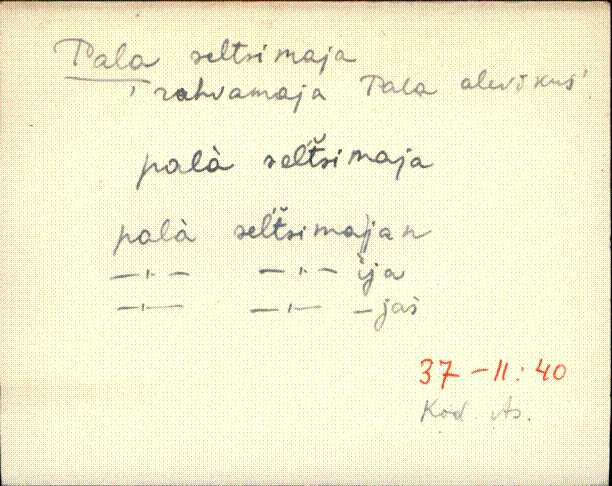 Pala seltsimaja
'rahvamaja Pala alevikus'
palà sel̆t́simaja
palà sel̆t́simajan
—"— —"— ija
—"— —"— -jas
37-II:40
Kod. As.